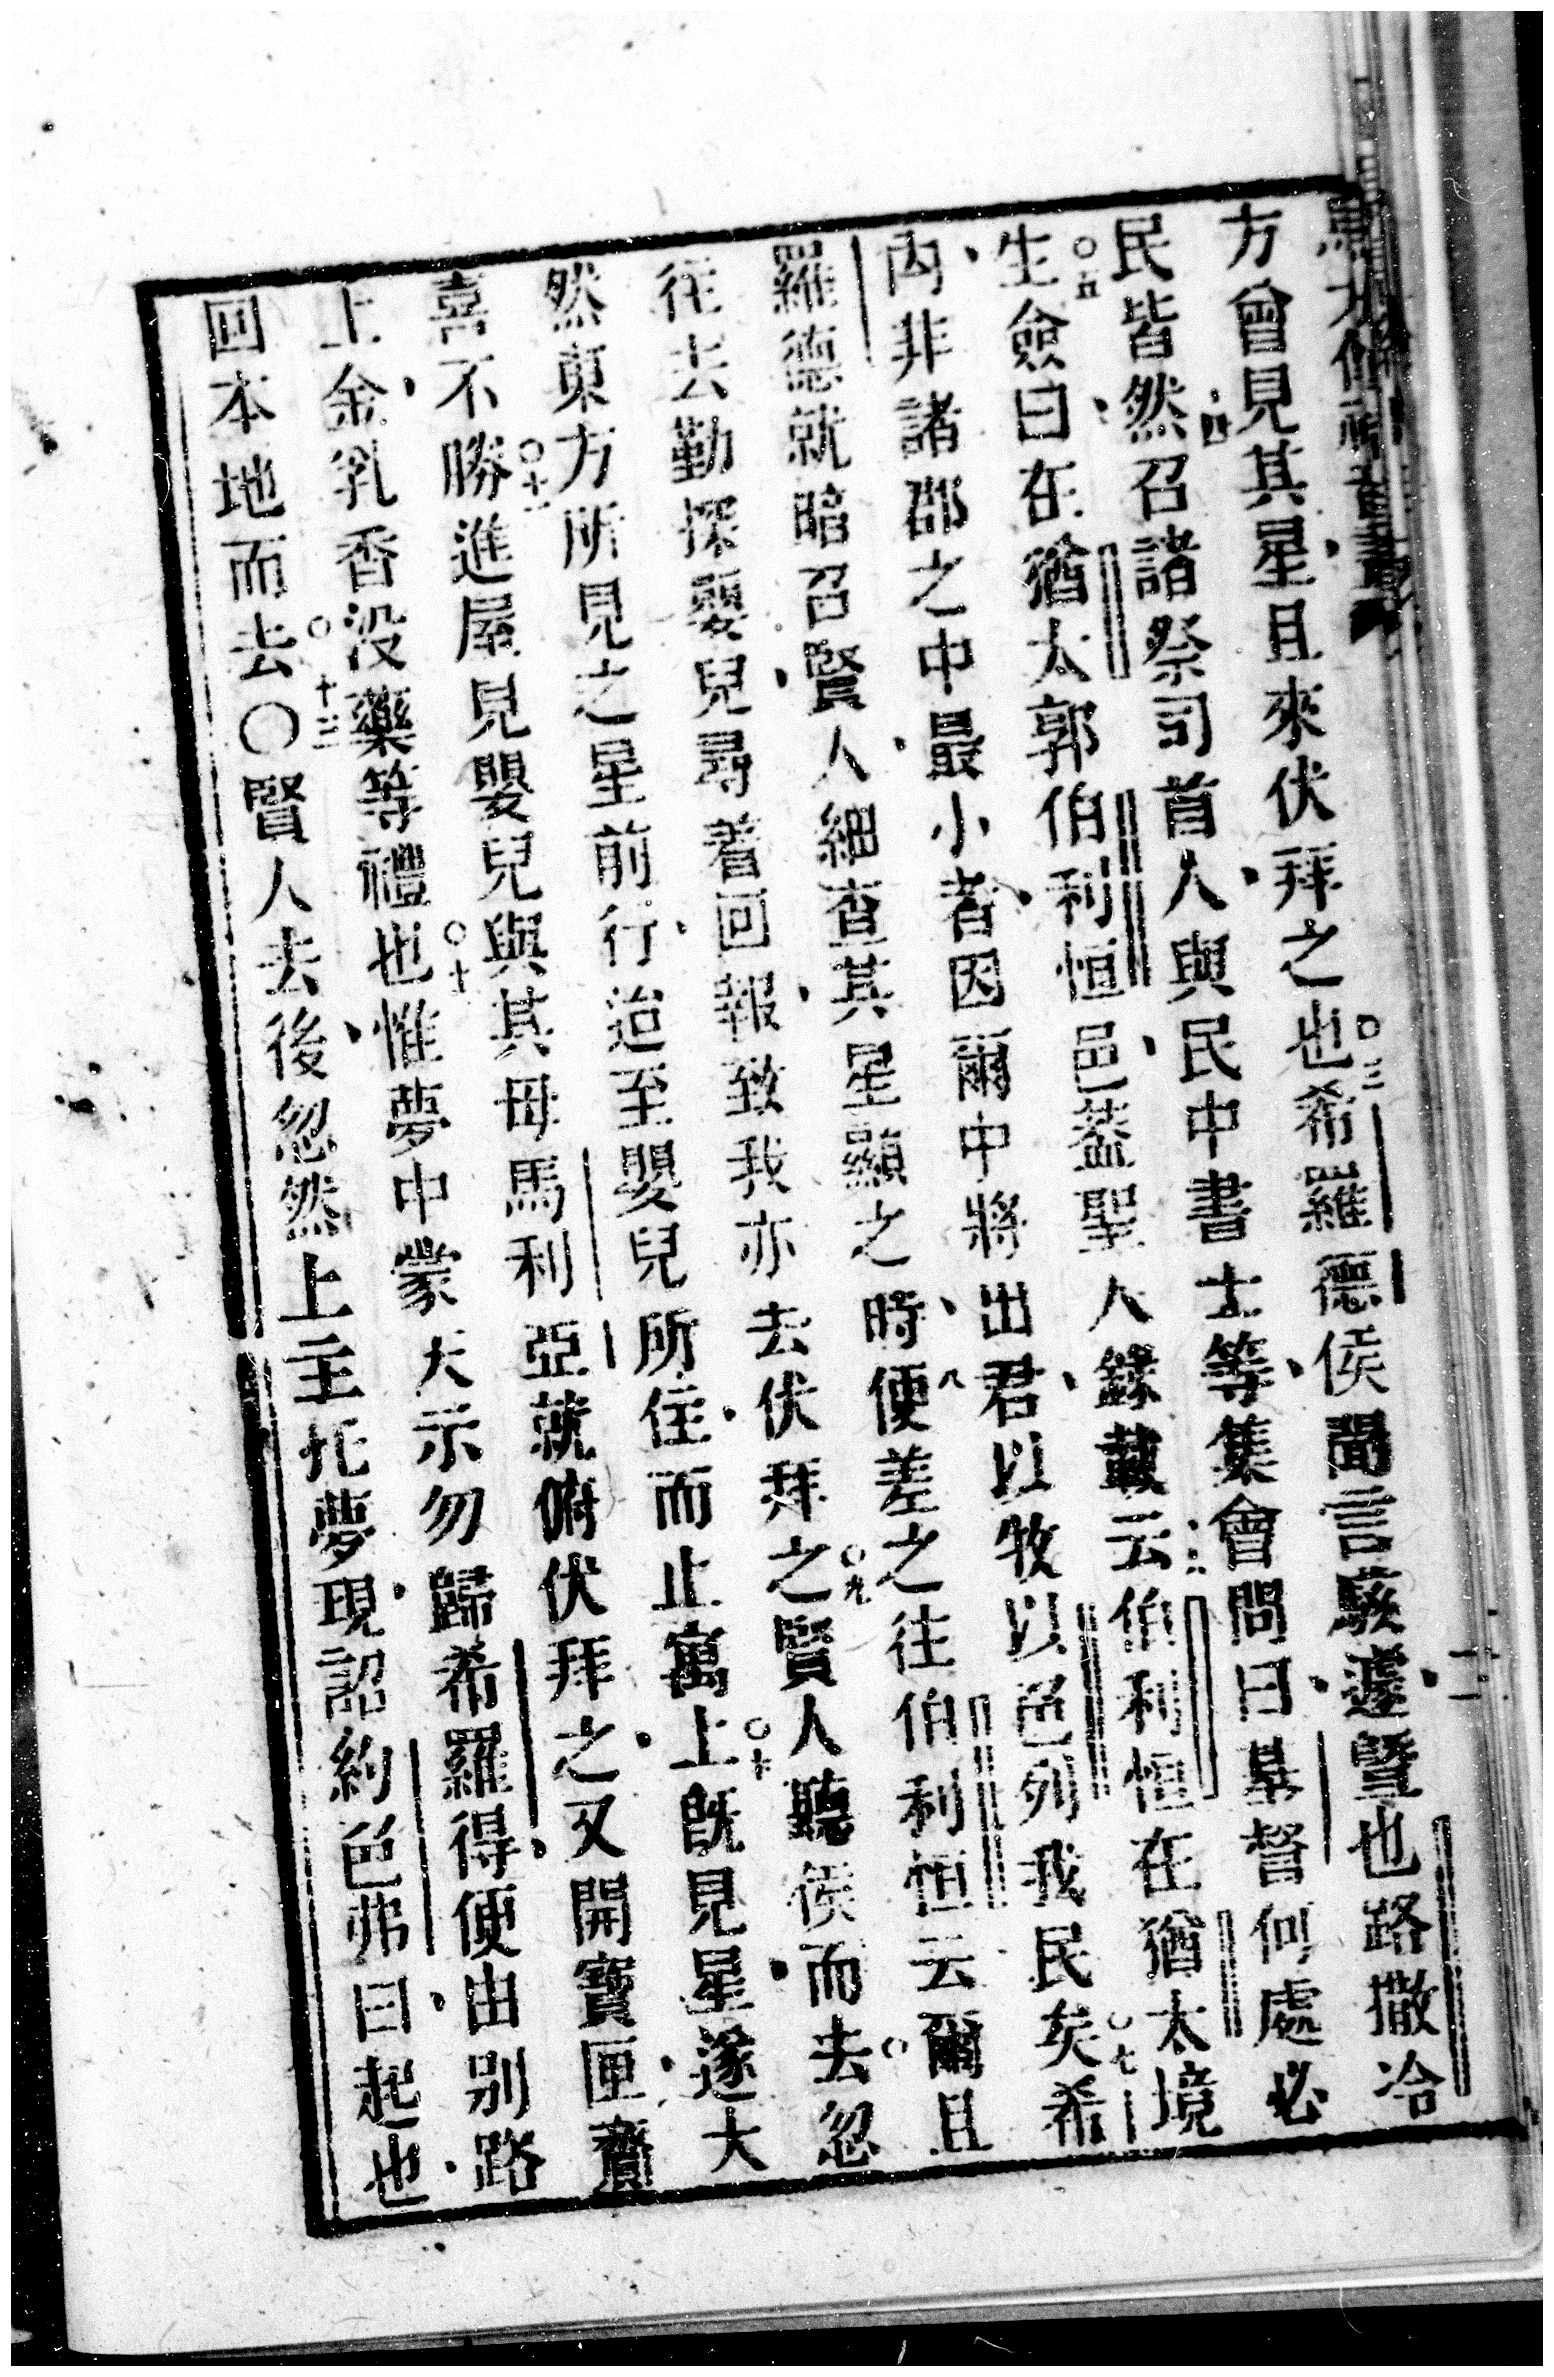 馬太傳福音書
二
方曾見其星且來伏拜之也○三希羅德侯聞言駭遽暨也路撒冷
民皆然四召諸祭司首人與民中書士等集會問曰基督何處必
生○五僉曰在猶太郭伯利恒邑葢聖人錄載云伯利恒在猶太境
內非諸郡之中最小者因爾中將出君以牧以色列我民矣○七希
羅德就暗召賢人細查其星顯之時八便差之往伯利恒云爾且
往去勤探嬰兒尋着回報致我亦去伏拜之○九賢人聽侯而去○忽
然東方所見之星前行迨至嬰兒所住而止寓上○十既見星遂大
喜不勝○十一進屋見嬰兒與其母馬利亞就俯伏拜之又開寶匣齎
上金乳香没藥等禮也○十惟夢中蒙大示勿歸希羅得便由別路
回本地而去○十三〇賢人去後忽然上主托夢現詔約色弗曰起也